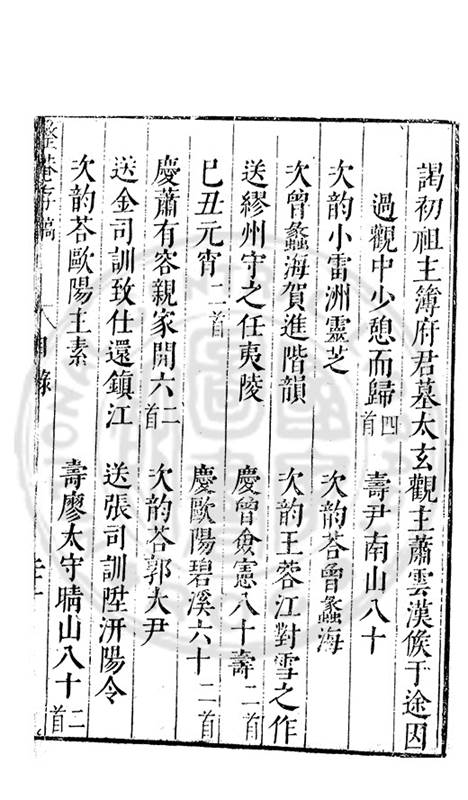 謁初祖主簿府君墓太玄觀主蕭雲漢候于途因
過觀中少憩而歸四首　壽尹南山八十
次韵小雷洲靈芝　次韵荅曾蠡海
次曾蠡海賀進階韻　次韵王蓉江對雪之作
送繆州守之任夷陵　慶曾僉憲八十壽二首
巳丑元宵二首　慶歐陽碧溪六十二首
慶蕭有容親家開六二首　次韵荅郭大尹
送金司訓致仕還鎮江　送張司訓陞汧陽令
次韵荅歐陽主素　壽廖太守晴山八十二首
整菴存稿　目錄